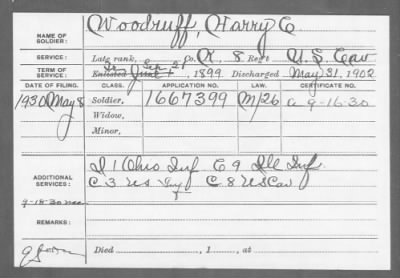 Woodruff, Harry C
NAME OF SOLDIER:
SERVICE: Late rank, Co. K, 8 Reg't U.S. Cav
TERM OF SERVICE: Enlisted Sep 21, 1899. Discharged May 31, 1902
DATE OF FILING. CLASS. APPLICATION NO. LAW. CERTIFICATE NO.
1930 May 8 Soldier, 1667399 M/26 C 9-16-30
Widow,
Minor,
ADDITIONAL SERVICES: D 1 Ohio Inf C 9 Ill Inf
C. 3 U S Inf C. 8 US Cav
9-18-30
REMARKS:
Died , 1 , at